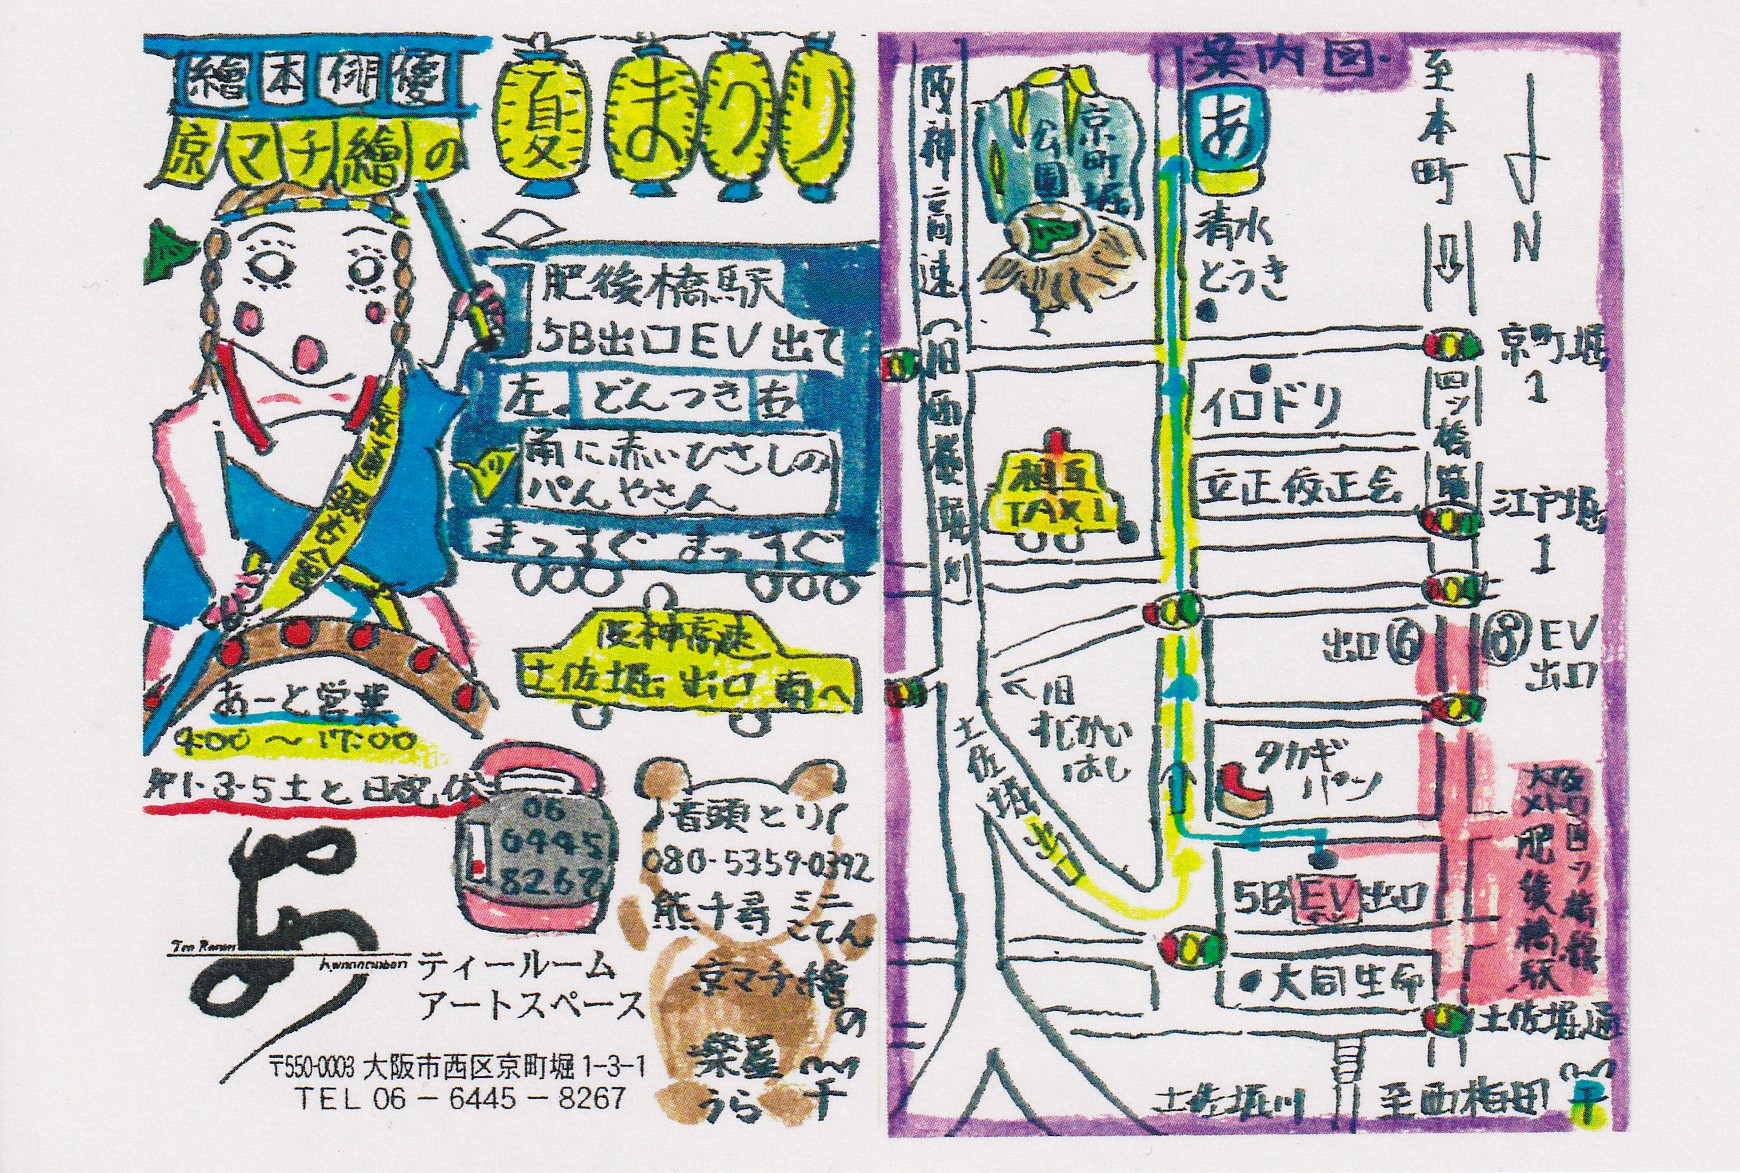 繪本俳優
京マチ繪の
夏まつり
肥後橋駅
5B出口EV出て
左。どんつき右
角に赤いひさしの
パんやさん
まっすぐ まっすぐ
阪神高速
土佐堀出口南へ
あーと営業
9:00〜17:00
1・3・5土と日祝休
06
6445
8267
音頭とり
080-5359-0392
熊千尋 ミニ
こてん
京マチ繪の
楽屋
うら
千
Tea Room
ティールーム
アートスペース
〒550-0003 大阪市西区京町堀1-3-1
TEL 06-6445-8267
案内図
阪神高速(旧西横堀川)
京町堀
公園
あ
清水
とうき
至本町
N
京町堀
1
イロドリ
四ツ橋筋
相互
TAXI
立正佼正会
江戸堀
1
出口⑥
⑧EV
出口
←旧
すじかい
はし
タカギ
パン
土佐堀
出口
大阪
メトロ四ツ橋線
肥後橋駅
5B EV 出口
大同生命
土佐堀通
土佐堀川
至西梅田
千